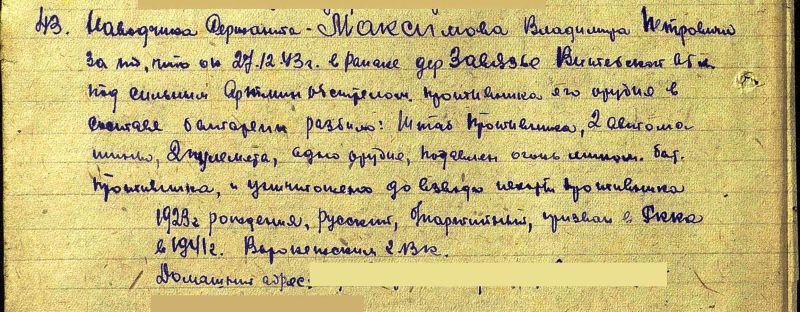 43. Наводчика Сержанта - Максимова Владимира Петровича
За то, что он 27.12.43 г. в районе дер Завязье Витебской обл.
под сильным Артмин обстрелом противника его орудие в
составе батареи разбило: Штаб противника, 2 автома
шины, 2 пулемета, одно орудие, подавлен огонь мином. бат.
противника, и уничтожено до взвода пехоты противника
1923 г рождения, русский, б/партийный, призван в РККА
в 1941 г. Воронежским РВК.
Домашний адрес: